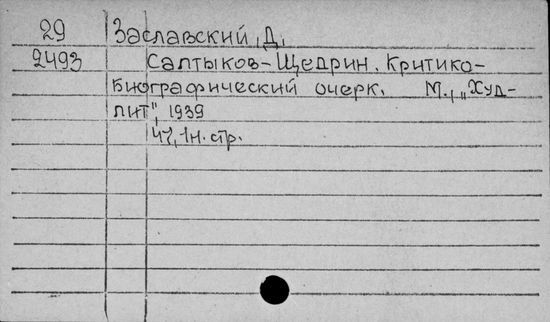 29 Заславский, Д.
2493 Салтыков-Щедрин. Критико-
биографический очерк. М., „Худ-
лит", 1939
47, 1н. стр.